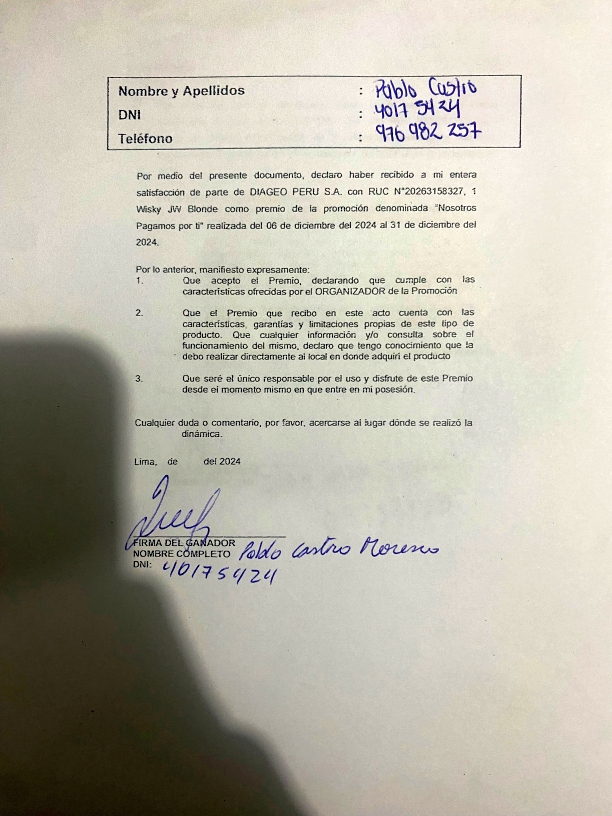 Nombre y Apellidos : Pablo Castro
DNI : 40175424
Teléfono : 976 982 257
Por medio del presente documento, declaro haber recibido a mi entera
satisfacción de parte de DIAGEO PERU S.A. con RUC N°20263158327, 1
Wisky JW Blonde como premio de la promoción denominada "Nosotros
Pagamos por ti" realizada del 06 de diciembre del 2024 al 31 de diciembre del
2024.
Por lo anterior, manifiesto expresamente:
1. Que acepto el Premio, declarando que cumple con las
características ofrecidas por el ORGANIZADOR de la Promoción
2. Que el Premio que recibo en este acto cuenta con las
características, garantías y limitaciones propias de este tipo de
producto. Que cualquier información y/o consulta sobre el
funcionamiento del mismo, declaro que tengo conocimiento que la
debo realizar directamente al local en donde adquirí el producto
3. Que seré el único responsable por el uso y disfrute de este Premio
desde el momento mismo en que entre en mi posesión.
Cualquier duda o comentario, por favor, acercarse al lugar dónde se realizó la
dinámica.
Lima, de del 2024
FIRMA DEL GANADOR
NOMBRE COMPLETO Pablo Castro Moreno
DNI: 40175424